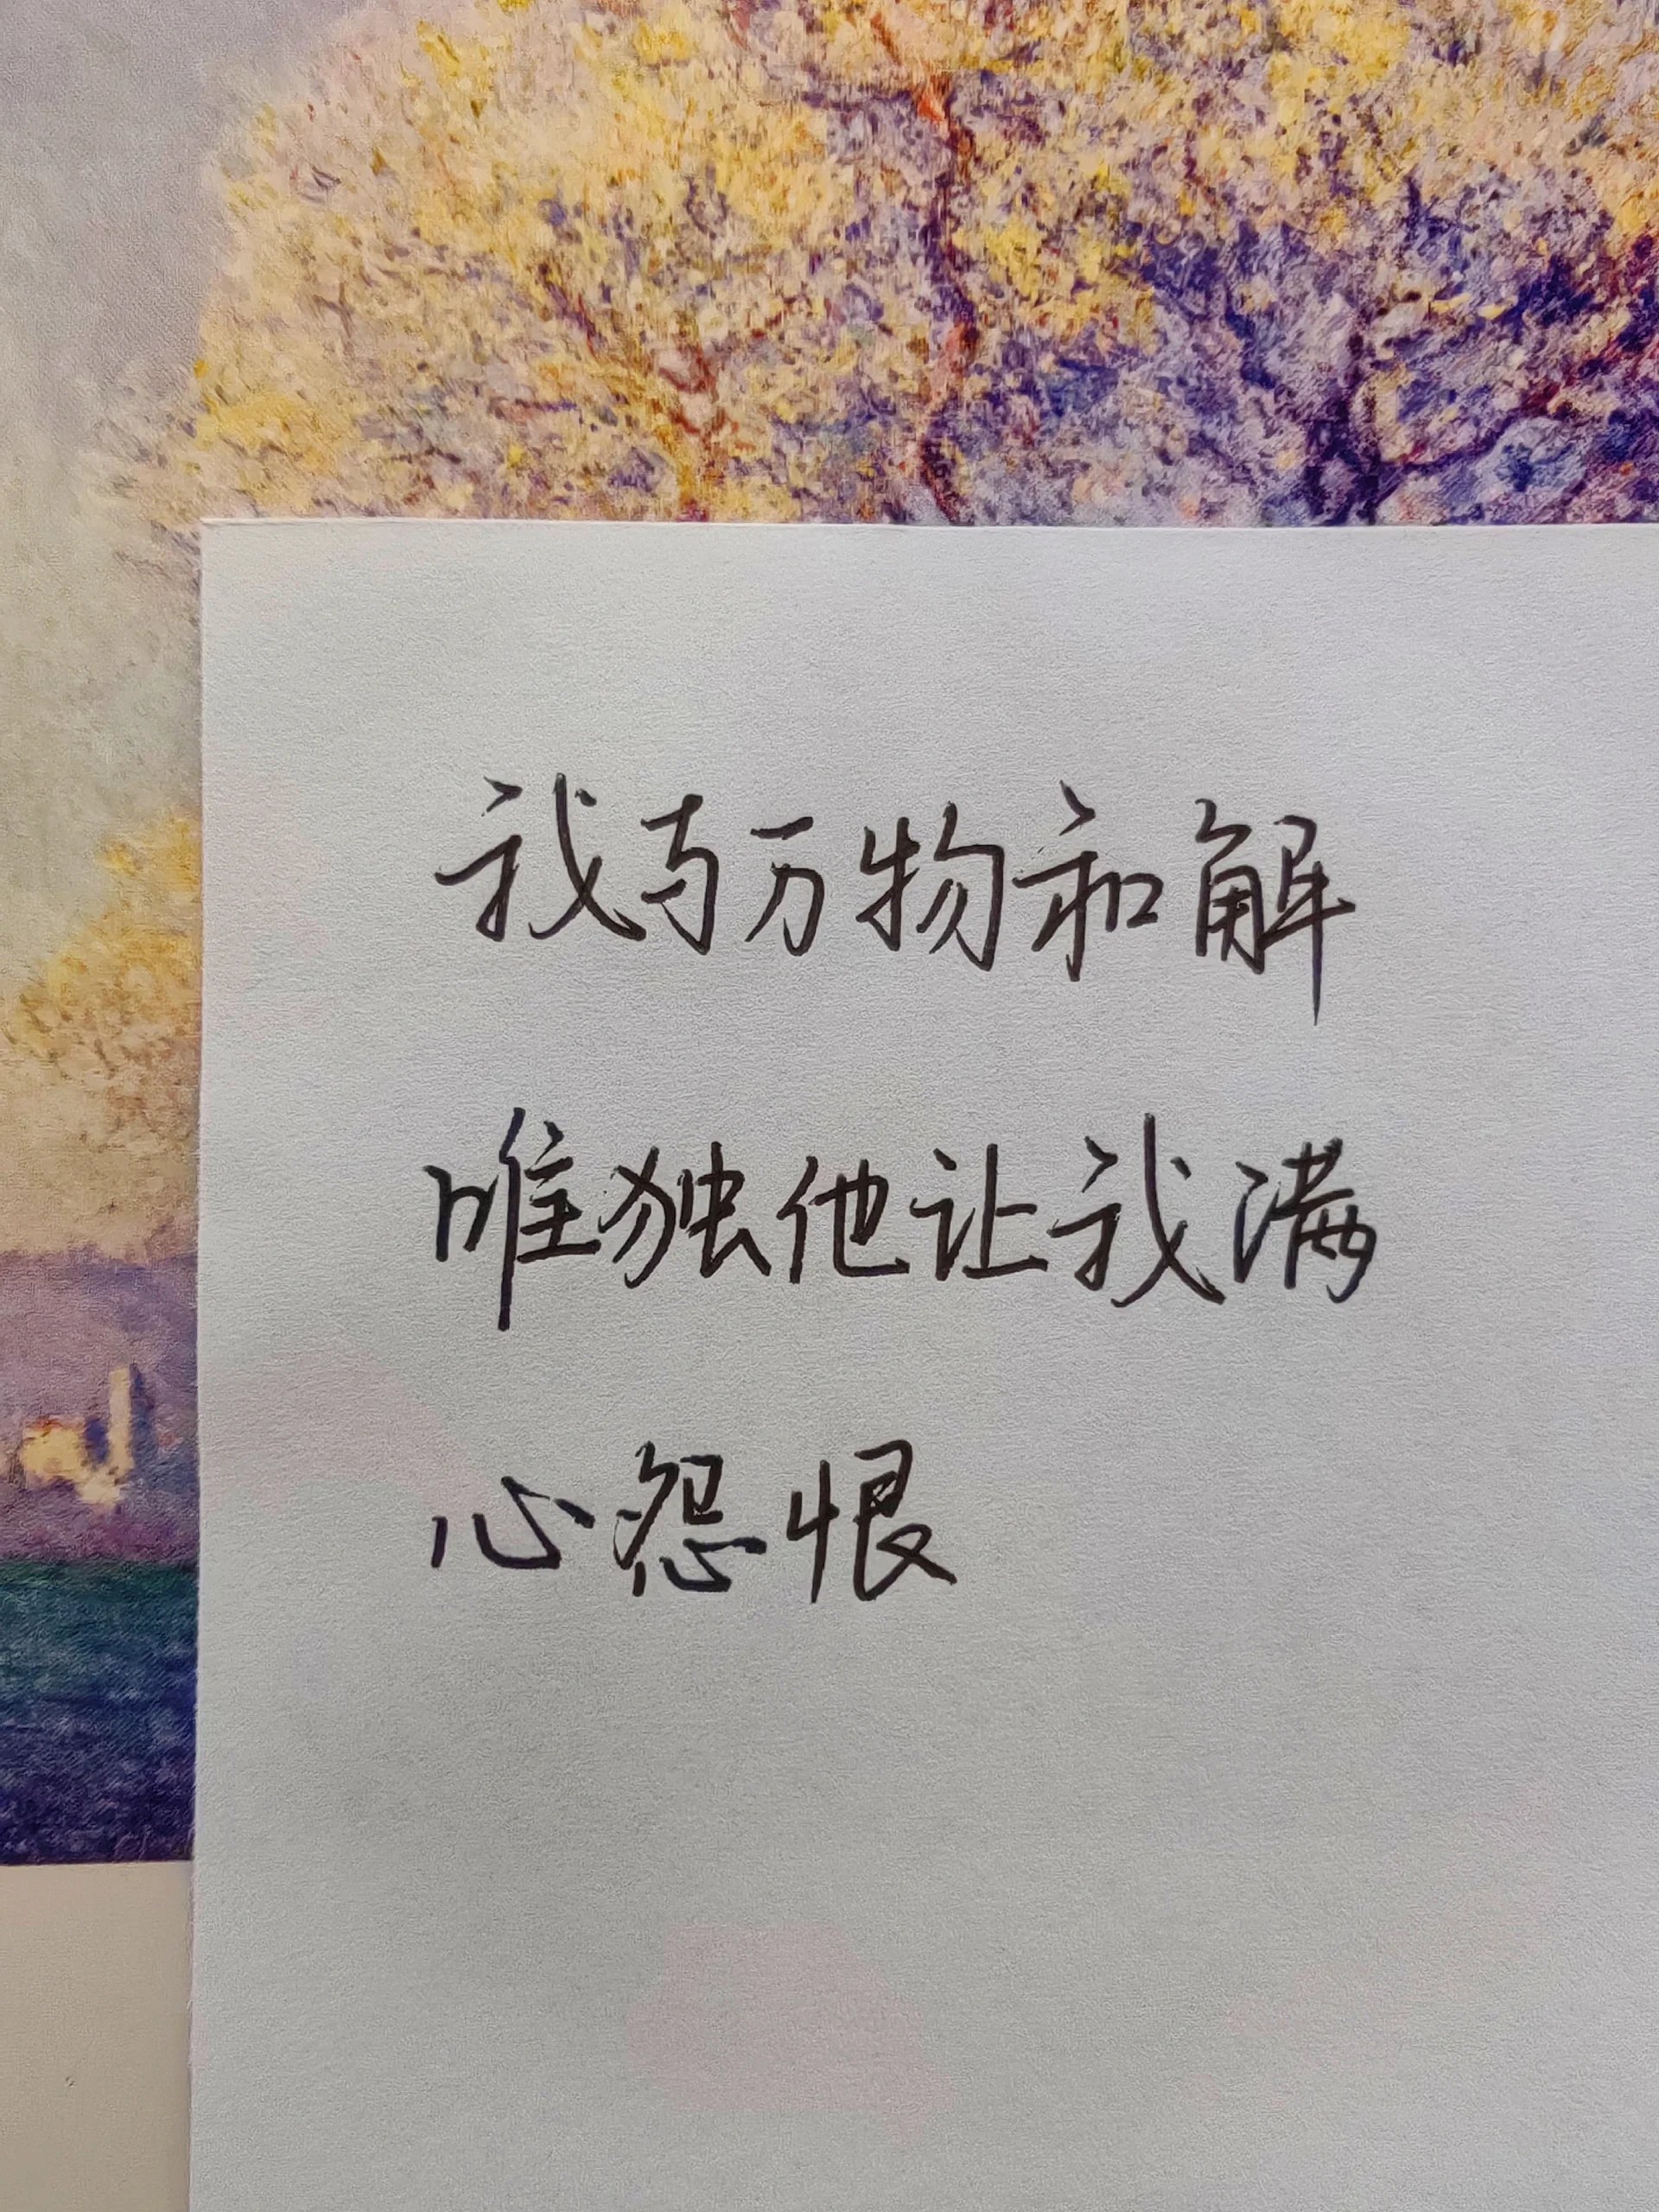 我与万物和解
唯独他让我满
心怨恨